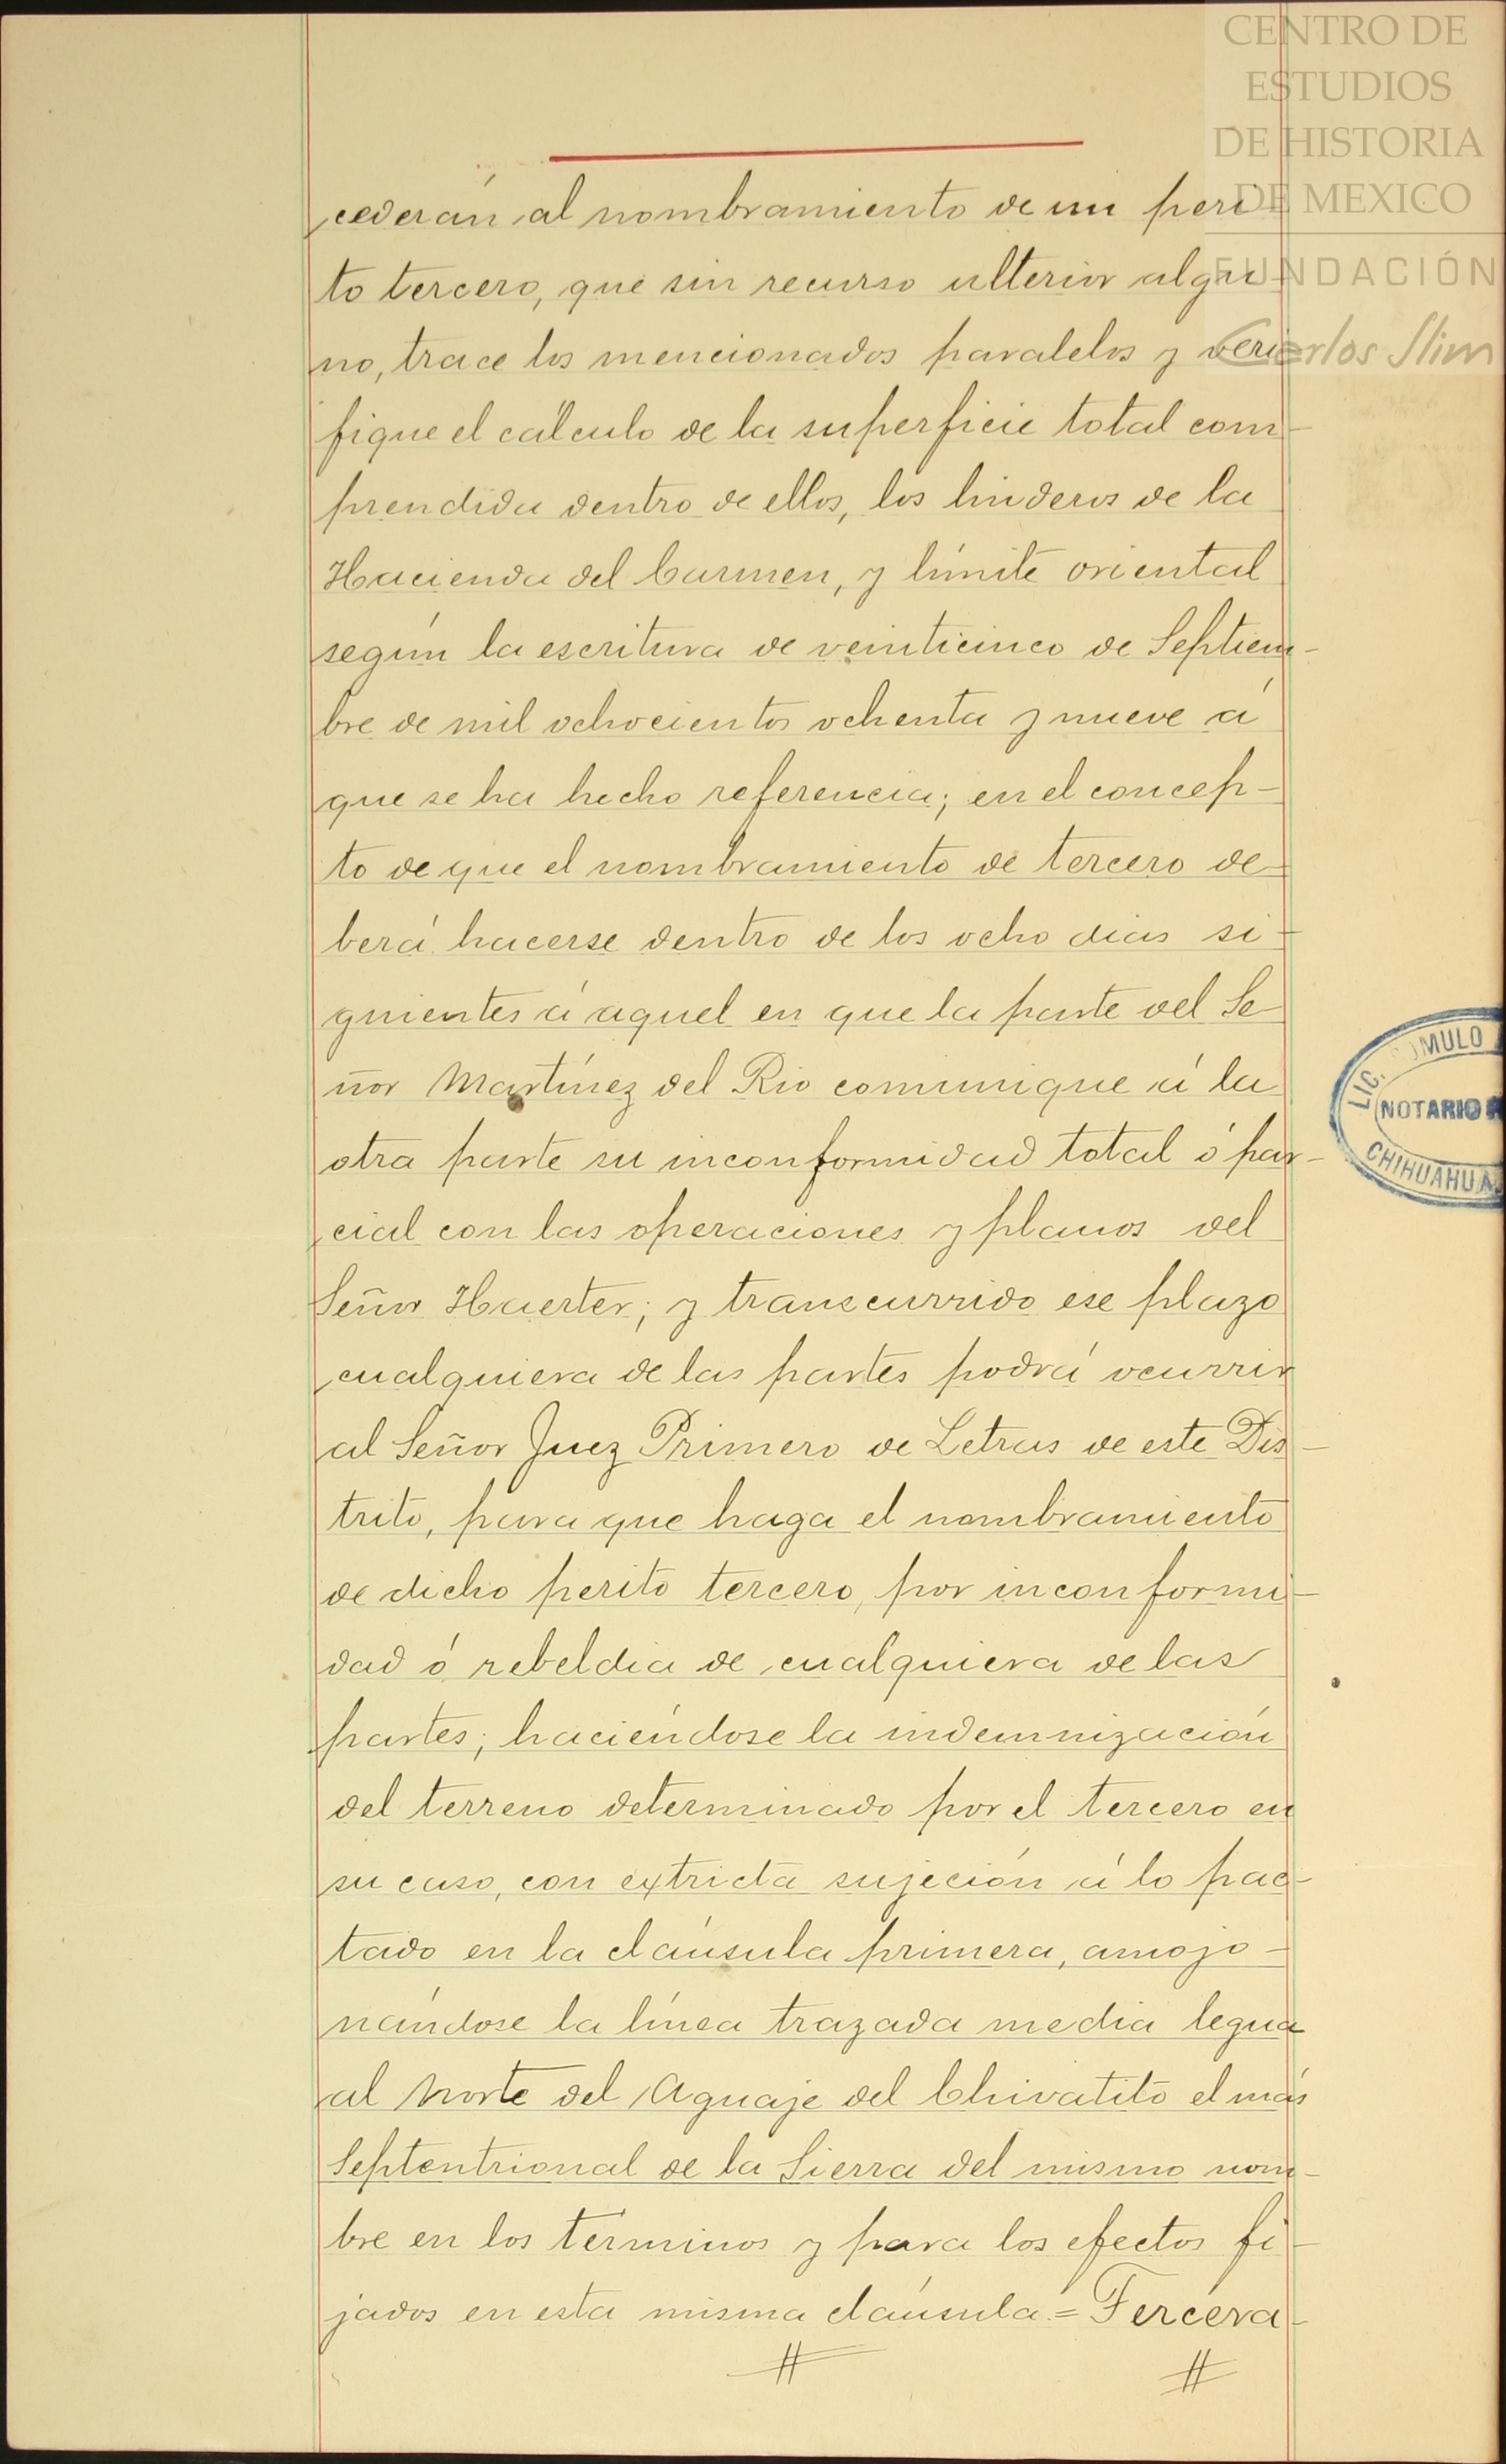 CENTRO DE
ESTUDIOS
DE HISTORIA
DE MEXICO
FUNDACIÓN
Carlos Slim
cederán al nombramiento de un peri
to tercero, que sin recurso ulterior algu-
no, trace los mencionados paralelos y veri-
fique el cálculo de la superficie total com-
prendida dentro de ellos, los linderos de la
Hacienda del Carmen, y límite oriental
según la escritura de veinticinco de Septiem-
bre de mil ochocientos ochenta y nueve á
que se ha hecho referencia; en el concep-
to de que el nombramiento de tercero de-
berá hacerse dentro de los ocho dias si-
guientes á aquel en que la parte del Se-
ñor Martínez del Rio comunique á la
otra parte su inconformidad total ó par-
cial con las operaciones y planos del
Señor Huerter; y transcurrido ese plazo
cualquiera de las partes podrá ocurrir
al Señor Juez Primero de Letras de este Dis-
trito, para que haga el nombramiento
de dicho perito tercero, por inconformi-
dad ó rebeldia de cualquiera de las
partes; haciéndose la indemnización
del terreno determinado por el tercero en
su caso, con extricta sujeción á lo pac-
tado en la cláusula primera, amojo-
nándose la línea trazada media legua
al Norte del Aguaje del Chivatito el más
Septentrional de la Sierra del mismo nom-
bre en los términos y para los efectos fi-
jados en esta misma cláusula.= Tercera-
LIC. ROMULO
NOTARIO
CHIHUAHUA